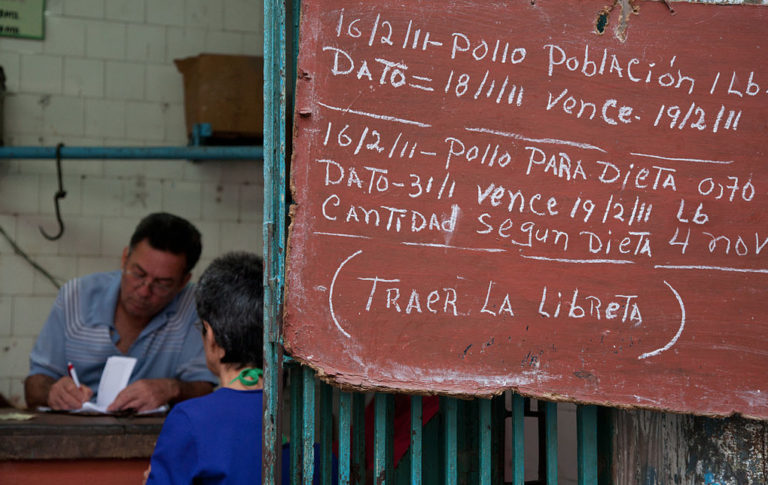 16/2/11-Pollo Población 1 Lb.
DATO=18/1/11 Vence-19/2/11
16/2/11-Pollo PARA DIETA 0,70
DATO-31/1 vence 19/2/11 Lb
CANTIDAd Segun DIETA 4 nov
(TRAER LA LibRETA)